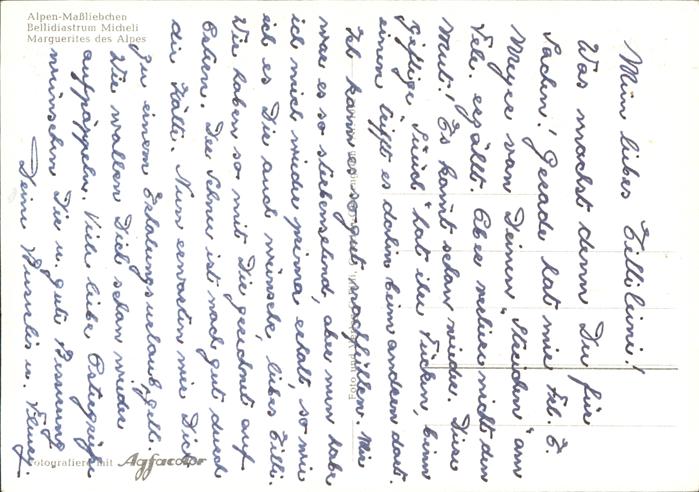 Alpen-Maßliebchen
Bellidiastrum Micheli
Marguerites des Alpes
Mein liebes Tillileini!
Was machst denn Du für
Sachen! Gerade hat mir Frl. E.
Meyer von Deinen "Steiden" am
Tel. erzählt. Aber verliere nicht den
Mut! Es kommt schon wieder. Diese
giftige "Süück" hat ihre Tücken, beim
einen lüpft es dahin beim andern dort.
Ich kann es so gut nachfühlen. Mir
war es so sterbenselend, aber nun habe
ich mich wieder prima erholt, so wie
ich es Dir auch wünsche, liebes Tilli.
Wir haben so mit Dir gerechnet auf
Ostern. Der Schnee ist noch gut durch
die Kälte. Nun erwarten wir Dich
zu einem Erholungsurlaub, gell.
Wir wollen Dich schon wieder
aufpäppeln. Viele liebe Ostergrüsse
wünschen Dir u. gute Besserung
Deine u.
Fotografiert mit Agfacolor
Foto und